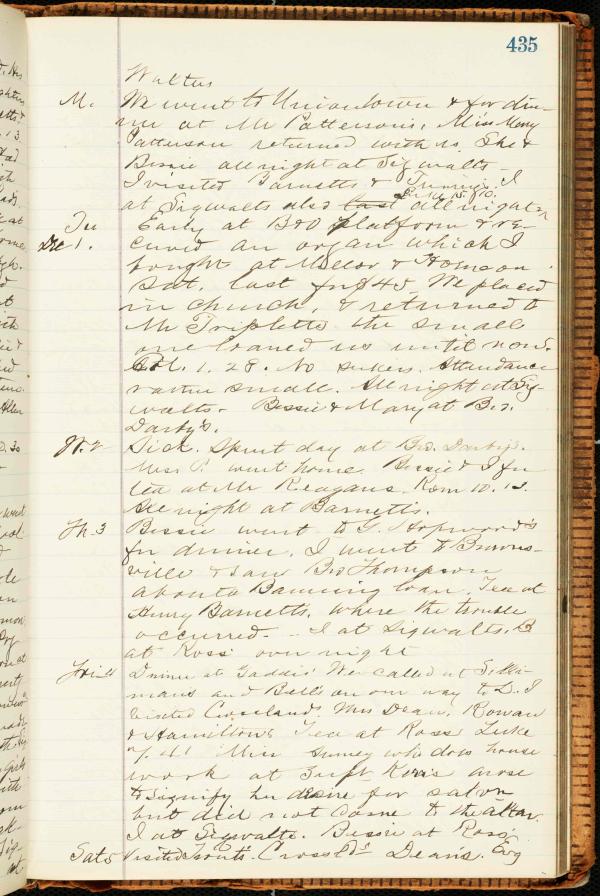 435
Walters
M. We went to Uniontown & for din-
ner at Mr Pattersons, Miss Mary
Patterson returned with us. She &
Bessie all night at Sigwalts -
I visited Barnetts & I
at Sigwalts also last all night
Luke 15. 10.
Tu Early at B&O platform & re-
Dec 1. ceived an organ which I
bought at Mellor & Hoene on
Sat. last for $45. We placed
in church, & returned to
Mr Tripletts the small
one loaned us until now.
Col. 1. 28. No seekers. Attendance
rather small. All night at Sig
walts - Bessie & Mary at B. F.
Darby's.
W. 2 Sick. Spent day at Bro. Darby's.
Miss P. went home. Bessie & I for
tea at Mr Reagans. Rom 10. 13.
All night at Barnetts.
Th. 3 Bessie went to G. Hopwood's
for dinner, I went to Browns-
ville & saw Bro Thompson
about a Banning loan. Tea at
Henry Barnetts, where the trouble
occurred. - I at Sigwalts, B
at Ross over night
Fri. 4 Dinner at Gaddis' We called at Silli-
mans and Bells on our way to D. I
visited Croslands Mrs Dean, Rowan
& Hamiltons Tea at Ross Luke
7. 41 Miss Gumey who does house
work at Supt arose
to signify her desire for salvn
but did not come to the altar.
I at Sigwalts. Bessie at Ross.
Sat 5 Visited Crossld's Dean's. Esq